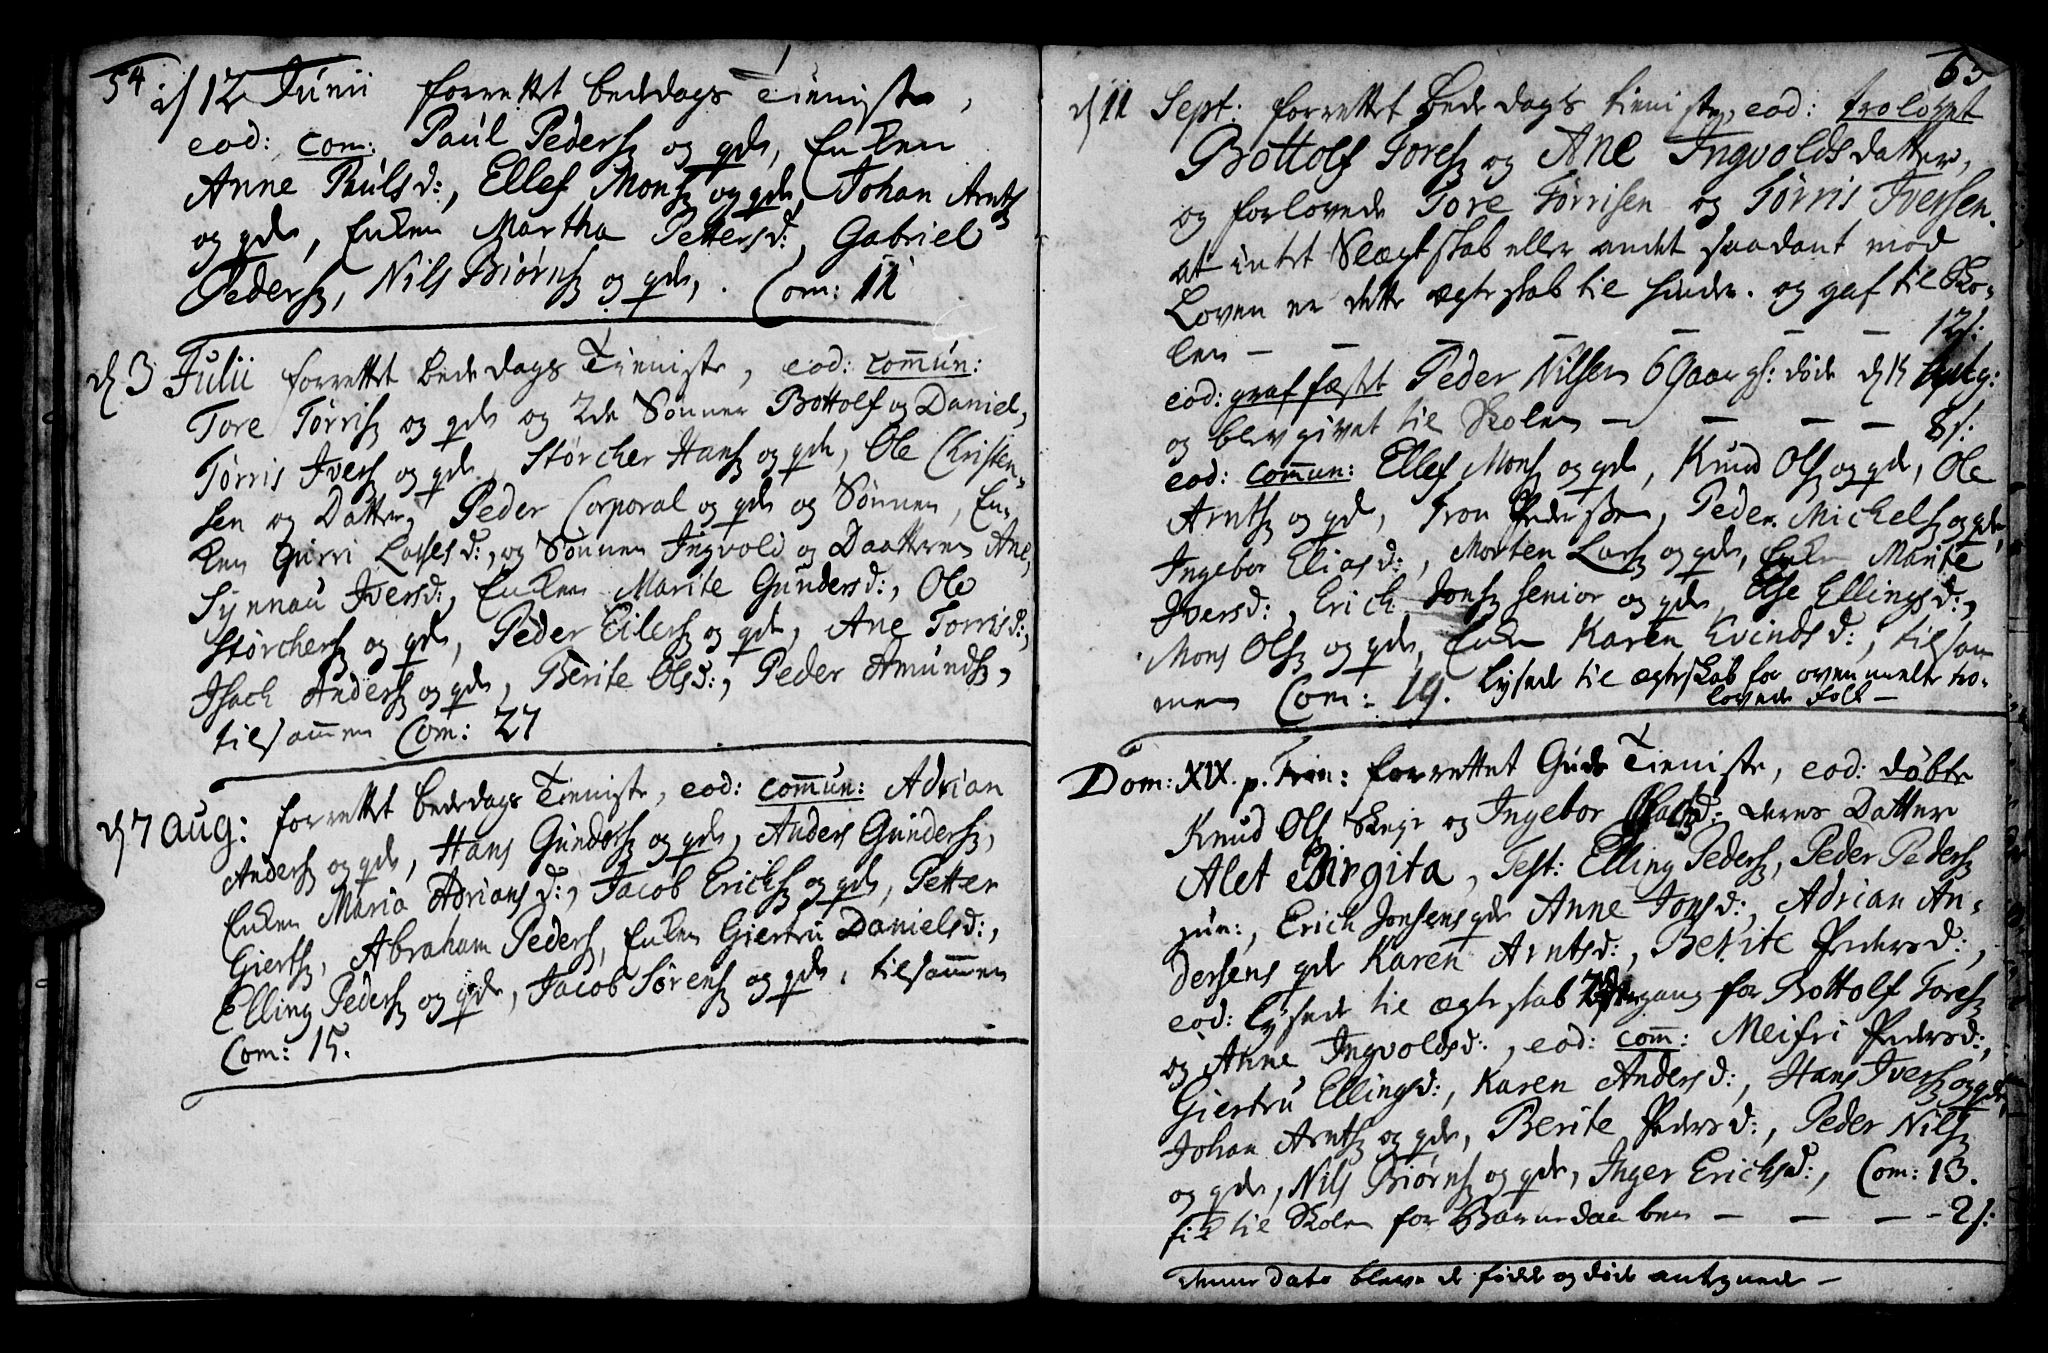 54
d 12 Junii forrettet bededags Tieniste,
eod: com: Paul Peders: og qde, Enken
Anne Paulsd:, Ellef Mons: og qde, Johan Arnts:
og qde, Enken Martha Pettersd:, Gabriel
Peders:, Nils Biørns: og qde, . Com: 11
d 3 Julii forrettet bededags Tieniste, eod: com̄un:
Tore Tørris: og qde og 2de Sønner Bottolf og Daniel,
Tørris Ivers: og qde, Størcher Hans: og qde, Ole Christen-
sen og Datter, Peder Corporal og qde og Sønnen, En-
ken Gurri Lassesd:, og Sønnen Ingvold og Daatteren Ane,
Synnau Iversd:, Enken Marite Gundersd:, Ole
Størchers: og qde, Peder Eilers: og qde, Ane Torrisd:,
Isach Anders: og qde, Berite Olsd:, Peder Amunds:,
tilsam̄en Com: 27
d 7 Aug: forrettet bededags Tieniste, eod: com̄un: Adrian
Anders: og qde, Hans Gunders: og qde, Anders Gunders:,
Enken Maria Adriansd:, Jacob Erichs: og qde, Petter
Gierts:, Abraham Peders:, Enken Giertru Danielsd:,
Elling Peders: og qde, Jacob Sørens: og qde, tilsam̄en
Com: 15.
65
d 11 Sept: forrettet Bededags tieniste, eod: trolovet
Bottolf Tores: og Ane Ingvoldsdatter,
og forlovede Tore Tørrisen og Tørris Iversen.
at intet Slægtskab eller andet saadant mod
Loven er dette ægteskab til hinder. og gaf til Sko-
len — — — — — — 12s:
eod: graffæstet Peder Nilsen 69 aar gl: døde d 15
og blev givet til Skolen — — — — 8s:
eod: com̄un: Ellef Mons: og qde, Knud Ols: og qde, Ole
Arnts: og qd, Tron Pedersen, Peder Michels: og qde,
Ingebor Eliasd:, Morten Lars: og qde, Enken Marite
Iversd:, Erich Jons: senior og qde, Else Ellingsd:,
Mons Ols: og qde, Enken Karen Evindsd:, tilsam
men Com: 19. Lysede til ægteskab for ovenmelte tro-
lovede folk —
Dom: XIX. p. Trin: forrettet Guds Tieniste, eod: døbte
Knud Ols: og Ingebor deres Datter
Alet Birgita, Test: Elling Peders:, Peder Peders:
jun:, Erich Jonsens qde Anne Jonsd:, Adrian An-
dersens qde Karen Arntsd:, Berite Pedersd:,
eod: Lysede til ægteskab 2den gang for Bottolf Tores:
og Anne Ingvoldsd:, eod: com̄: Meifri Pedersd:,
Giertru Ellingsd:, Karen Andersd:, Hans Ivers: og qde,
Johan Arnts: og qde, Berite Pedersd:, Peder Nils:
og qde, Nils Biørns: og qde, Inger Erichsd:, Com: 13.
fik til Skolen for Barnedaaben — — — - 2s:
denne Dato bleve de fødde og døde antegnede —